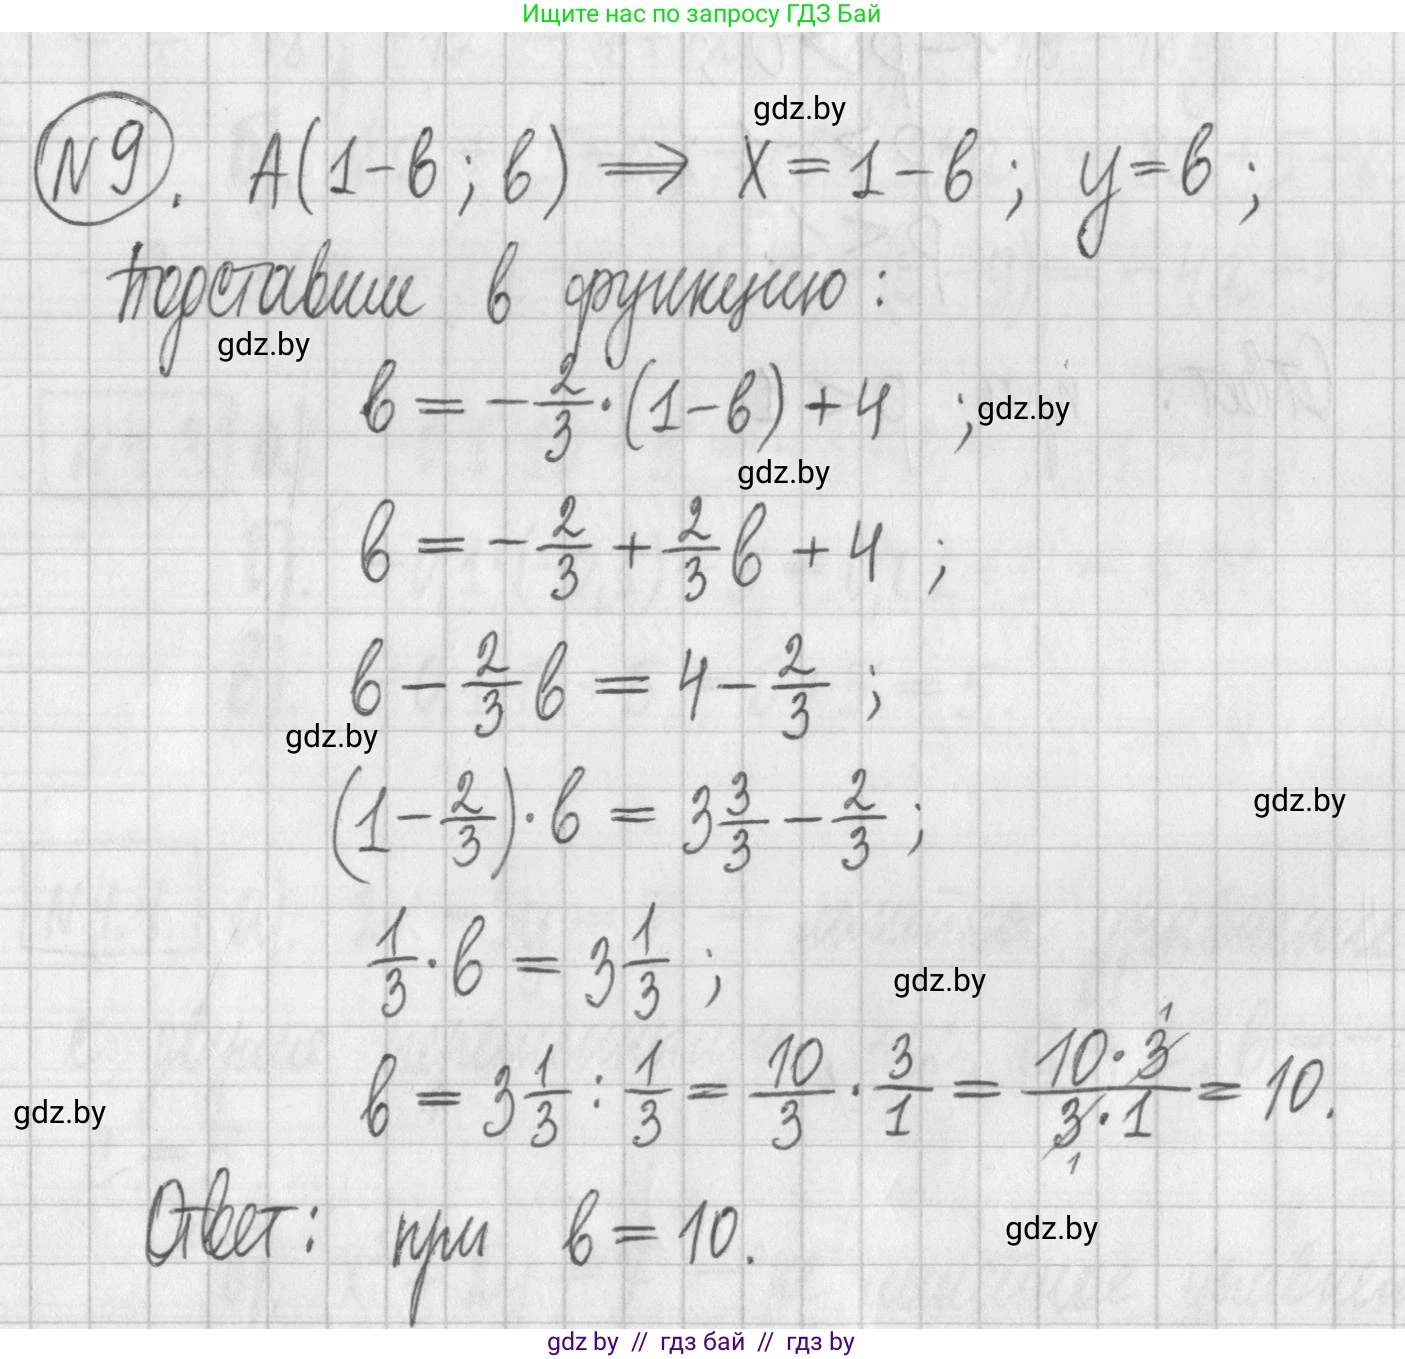 Ищите нас по запросу ГДЗ Бай
gdz.by
№9. А(1-в; в) ⟹ x = 1-в; y = в;
Подставим в функцию:
gdz.by
в = -2/3·(1-в)+4 ;
gdz.by
gdz.by
в = -2/3 + 2/3в + 4 ;
в - 2/3в = 4 - 2/3 ;
gdz.by
(1 - 2/3)·в = 3 3/3 - 2/3 ;
gdz.by
1/3·в = 3 1/3 ;
gdz.by
в = 3 1/3 : 1/3 = 10/3 · 3/1 = 10·3/3·1 = 10.
gdz.by
Ответ: при в = 10.
gdz.by
gdz by // гдз бай // гдз by